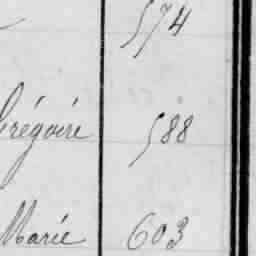 574
Grégoire 588
Marie 603